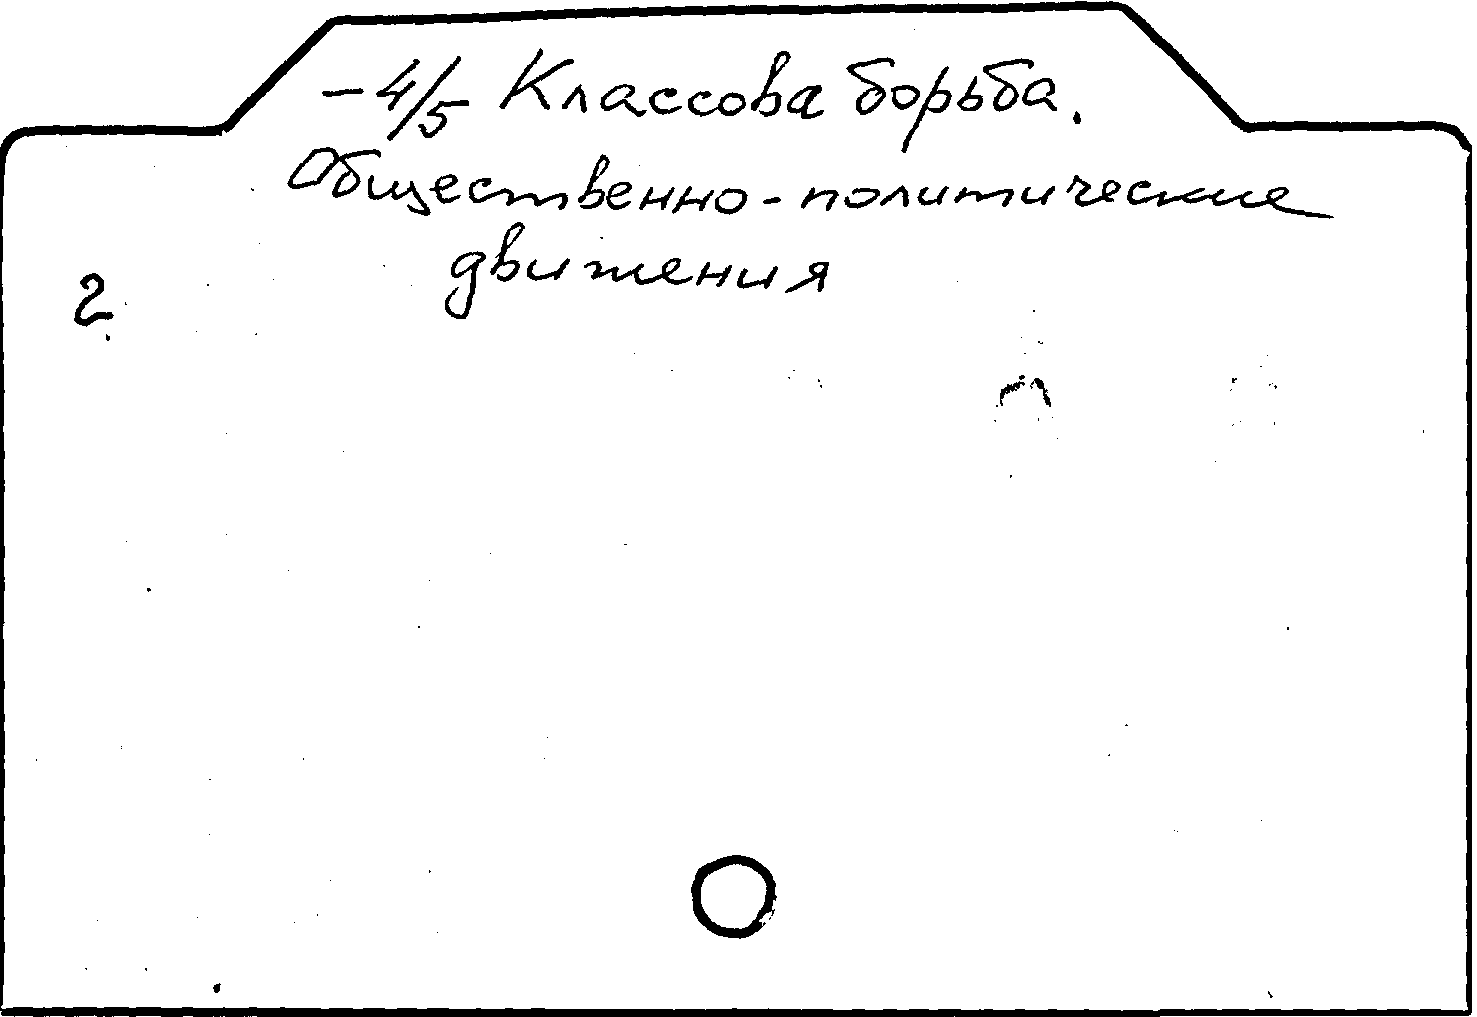 -4/5 Классова борьба.
Общественно-политические
движения
2